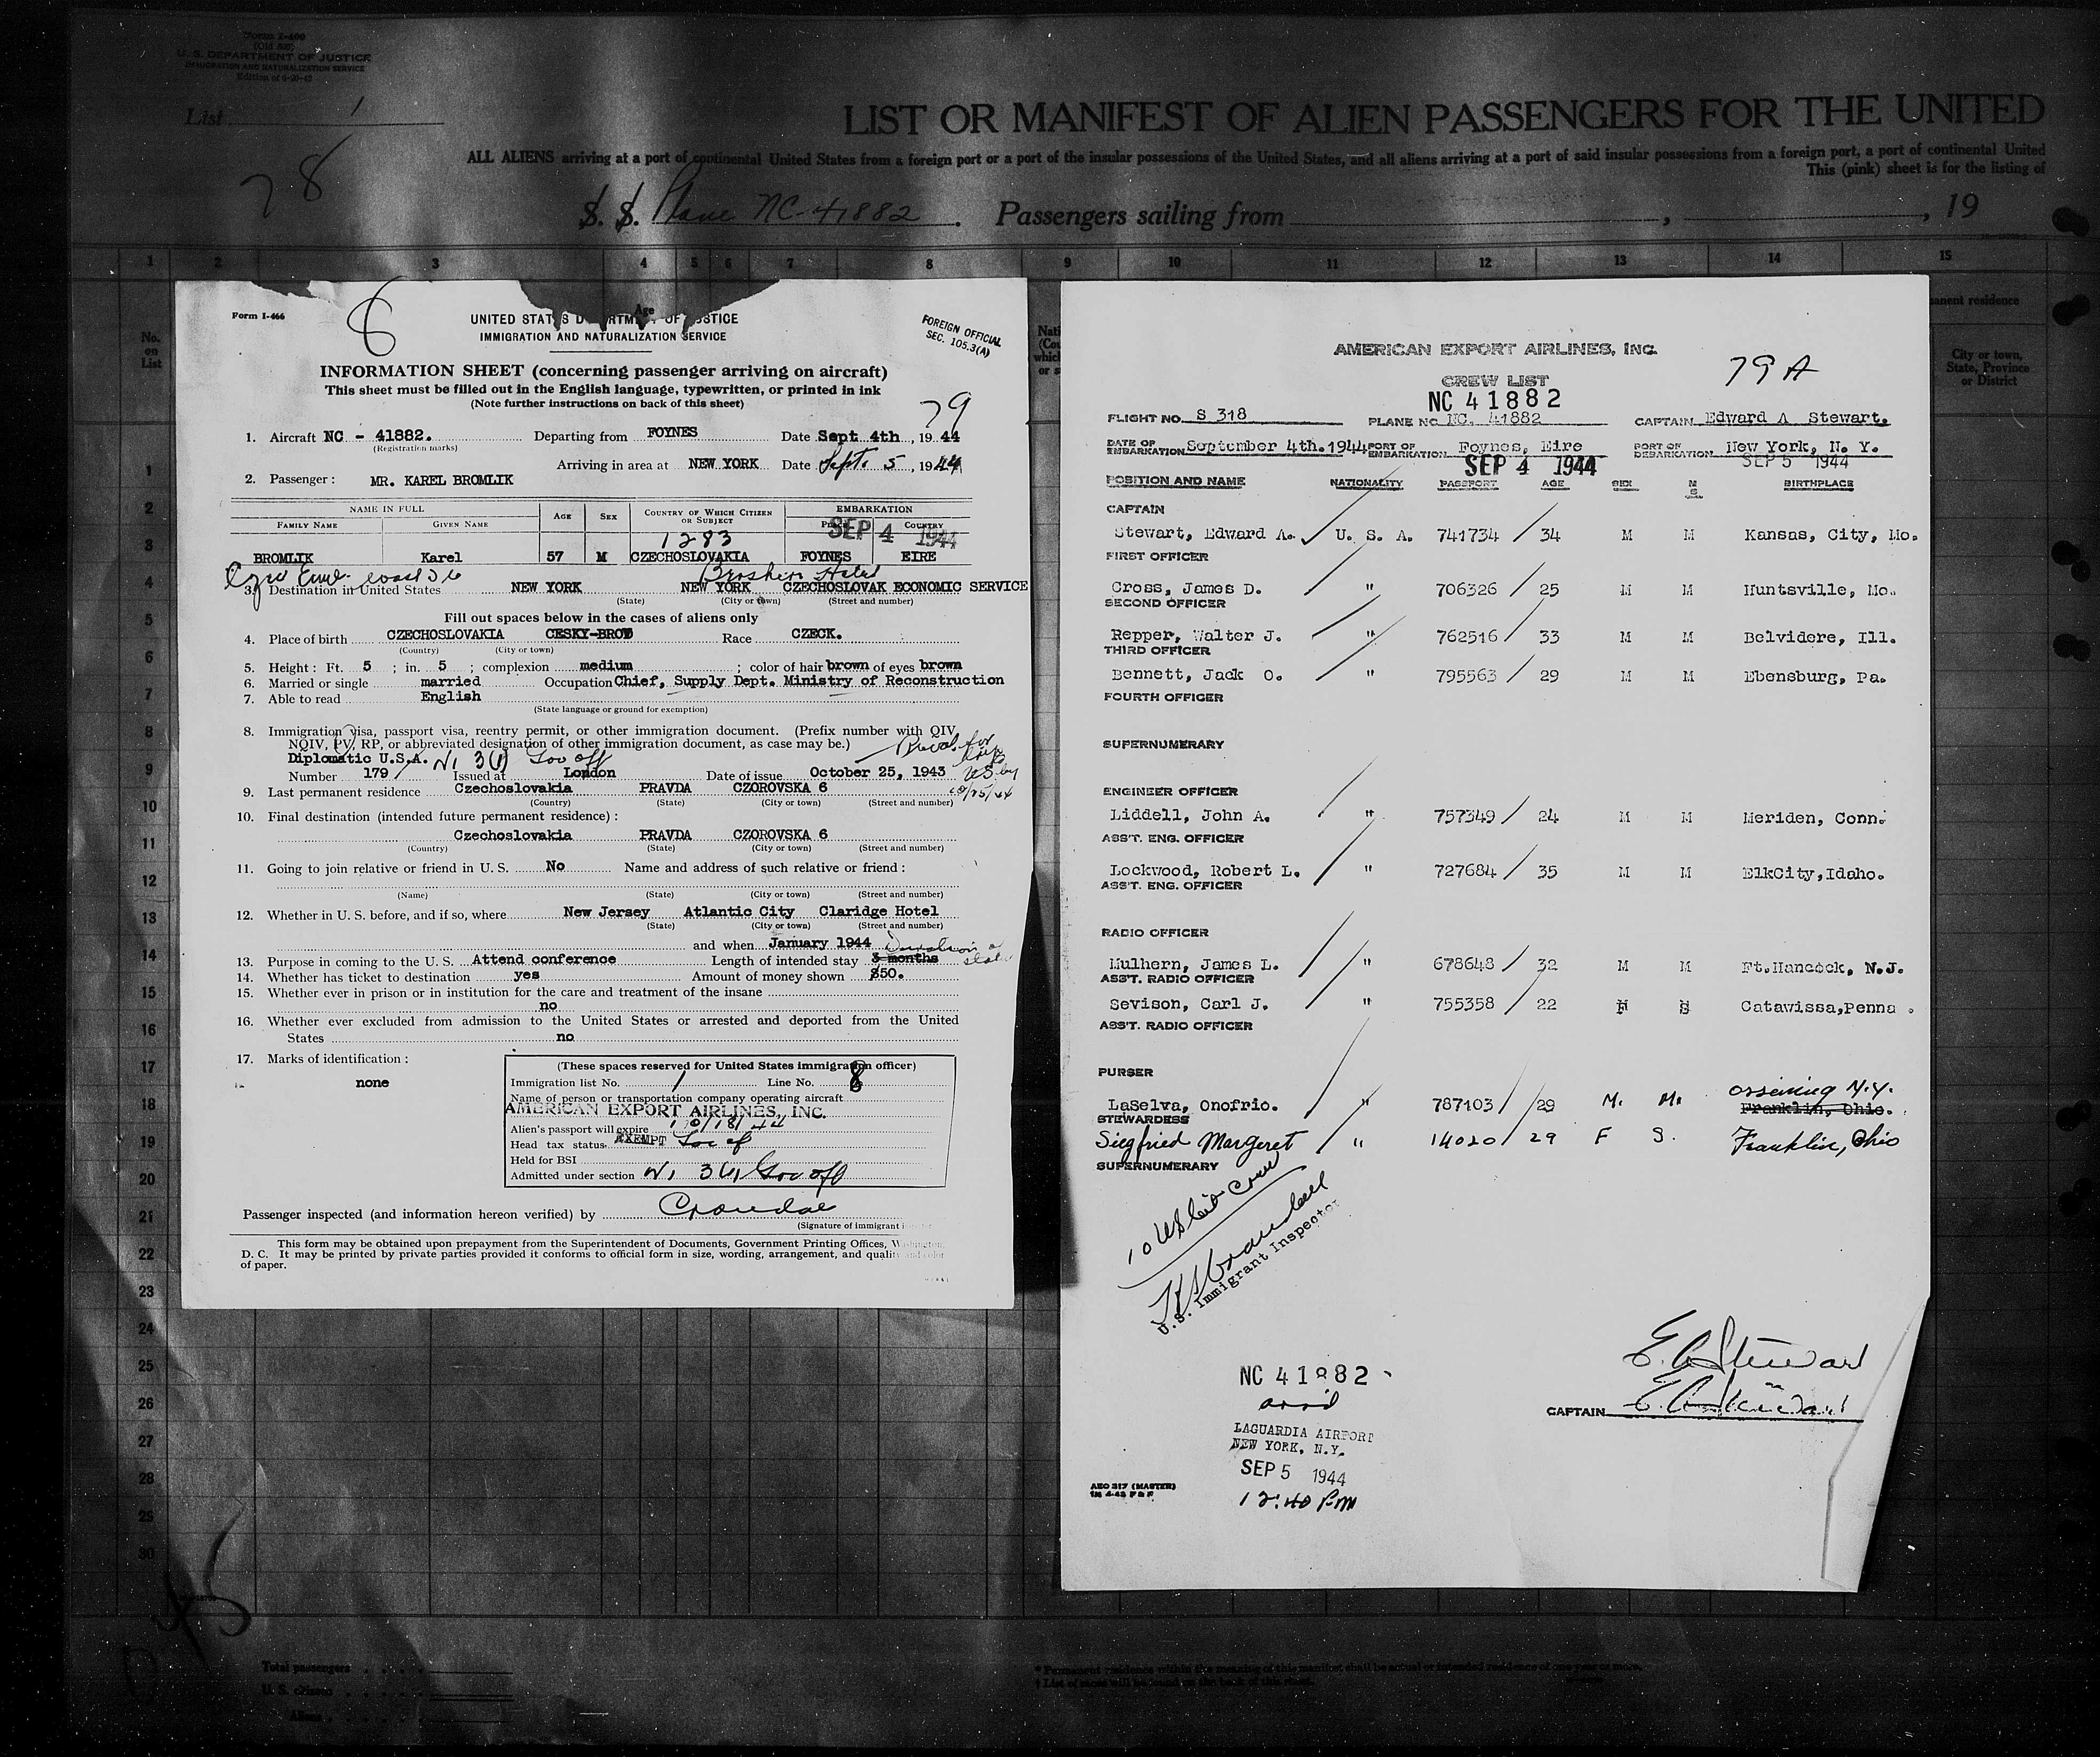 Form I-466
(Old 500)
U. S. DEPARTMENT OF JUSTICE
IMMIGRATION AND NATURALIZATION SERVICE
List 1
78
LIST OR MANIFEST OF ALIEN PASSENGERS FOR THE UNITED
ALL ALIENS arriving at a port of continental United States from a foreign port or a port of the insular possessions of the United States, and all aliens arriving at a port of said insular possessions from a foreign port, a port of continental United
This (pink) sheet is for the listing of
S. S. Plane NC-41882. Passengers sailing from , , 19
1 2 3 4 5 6 7 8 9 10 11 12 13 14 15
No. on List
Age
City or town, State, Province or District
Form I-466
8
UNITED STATES DEPARTMENT OF JUSTICE
IMMIGRATION AND NATURALIZATION SERVICE
FOREIGN OFFICIAL
SEC. 105.3(A)
INFORMATION SHEET (concerning passenger arriving on aircraft)
This sheet must be filled out in the English language, typewritten, or printed in ink
(Note further instructions on back of this sheet)
79
1. Aircraft NC - 41882. Departing from FOYNES Date Sept 4th , 19 44
(Registration marks)
Arriving in area at NEW YORK Date Sept. 5 , 19 44
2. Passenger : MR. KAREL BROMLIK
NAME IN FULL AGE SEX COUNTRY OF WHICH CITIZEN OR SUBJECT EMBARKATION
FAMILY NAME GIVEN NAME PLACE COUNTRY
1283 SEP 4 1944
BROMLIK Karel 57 M CZECHOSLOVAKIA FOYNES EIRE
3. Destination in United States NEW YORK NEW YORK CZECHOSLOVAK ECONOMIC SERVICE
(State) (City or town) (Street and number)
Fill out spaces below in the cases of aliens only
4. Place of birth CZECHOSLOVAKIA CESKY-BROD Race CZECK.
(Country) (City or town)
5. Height : Ft. 5 ; in. 5 ; complexion medium ; color of hair brown of eyes brown
6. Married or single married Occupation Chief, Supply Dept. Ministry of Reconstruction
7. Able to read English
(State language or ground for exemption)
8. Immigration visa, passport visa, reentry permit, or other immigration document. (Prefix number with QIV,
NQIV, PV, RP, or abbreviated designation of other immigration document, as case may be.)
Diplomatic U.S.A. Gov off
Number 179 Issued at London Date of issue October 25, 1943
9. Last permanent residence Czechoslovakia PRAVDA CZOROVSKA 6
(Country) (State) (City or town) (Street and number)
10. Final destination (intended future permanent residence) :
Czechoslovakia PRAVDA CZOROVSKA 6
(Country) (State) (City or town) (Street and number)
11. Going to join relative or friend in U. S. No Name and address of such relative or friend :
(Name) (State) (City or town) (Street and number)
12. Whether in U. S. before, and if so, where New Jersey Atlantic City Claridge Hotel
(State) (City or town) (Street and number)
and when January 1944
13. Purpose in coming to the U. S. Attend conference Length of intended stay 3 months Duration of status
14. Whether has ticket to destination yes Amount of money shown $50.
15. Whether ever in prison or in institution for the care and treatment of the insane
no
16. Whether ever excluded from admission to the United States or arrested and deported from the United
States no
17. Marks of identification :
none
(These spaces reserved for United States immigration officer)
Immigration list No. 1 Line No. 8
Name of person or transportation company operating aircraft
AMERICAN EXPORT AIRLINES, INC.
Alien's passport will expire 10/18/44
Head tax status EXEMPT Gov of
Held for BSI
Admitted under section Gov off
Passenger inspected (and information hereon verified) by Crandall
(Signature of immigrant
This form may be obtained upon prepayment from the Superintendent of Documents, Government Printing Offices, Washington,
D. C. It may be printed by private parties provided it conforms to official form in size, wording, arrangement, and quality and color
of paper.
AMERICAN EXPORT AIRLINES, INC.
79 A
CREW LIST
NC 41882
FLIGHT NO. S 318 PLANE NO. NC. 41882 CAPTAIN Edward A Stewart.
DATE OF EMBARKATION September 4th.1944 PORT OF EMBARKATION Foynes, Eire PORT OF DEBARKATION New York, N. Y.
SEP 4 1944 SEP 5 1944
POSITION AND NAME NATIONALITY PASSPORT AGE SEX M S BIRTHPLACE
CAPTAIN
Stewart, Edward A. U. S. A. 741734 34 M M Kansas, City, Mo.
FIRST OFFICER
Cross, James D. " 706326 25 M M Huntsville, Mo.
SECOND OFFICER
Repper, Walter J. " 762516 33 M M Belvidere, Ill.
THIRD OFFICER
Bennett, Jack O. " 795563 29 M M Ebensburg, Pa.
FOURTH OFFICER
SUPERNUMERARY
ENGINEER OFFICER
Liddell, John A. " 757349 24 M M Meriden, Conn.
ASS'T. ENG. OFFICER
Lockwood, Robert L. " 727684 35 M M ElkCity,Idaho.
ASS'T. ENG. OFFICER
RADIO OFFICER
Mulhern, James L. " 678648 32 M M Ft.Hancock, N.J.
ASS'T. RADIO OFFICER
Sevison, Carl J. " 755358 22 M S Catawissa,Penna .
ASS'T. RADIO OFFICER
PURSER
Ossining N.Y.
LaSelva, Onofrio. " 787103 29 M. M. Franklin, Ohio.
STEWARDESS
Siegfried Margeret " 14020 29 F S. Franklin, Ohio
SUPERNUMERARY
10 US Cit Crew
U.S. Immigrant Inspector
E. A Stewart
CAPTAIN E. A Stewart
NC 41882
arr'd
LAGUARDIA AIRPORT
NEW YORK, N.Y.
SEP 5 1944
12:40 PM
AEO 317 (MASTER)
1M 4-43 P & F
1
2
3
4
5
6
7
8
9
10
11
12
13
14
15
16
17
18
19
20
21
22
23
24
25
26
27
28
29
30
Total passengers
U. S. citizens
Aliens
* Permanent residence within the meaning of this manifest shall be actual or intended residence of one year or more.
† List of races will be found on the back of this sheet.